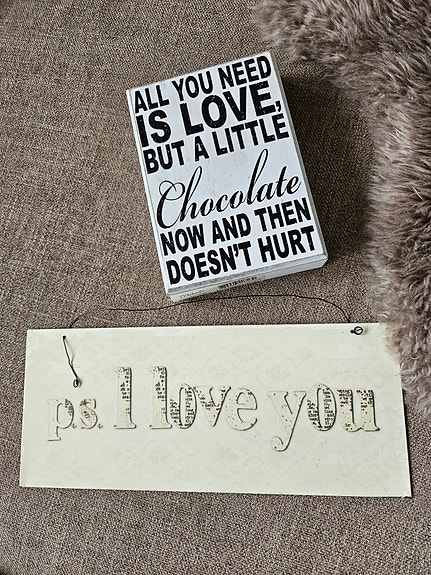 ALL YOU NEED
IS LOVE,
BUT A LITTLE
Chocolate
NOW AND THEN
DOESN'T HURT
p.s. I love you